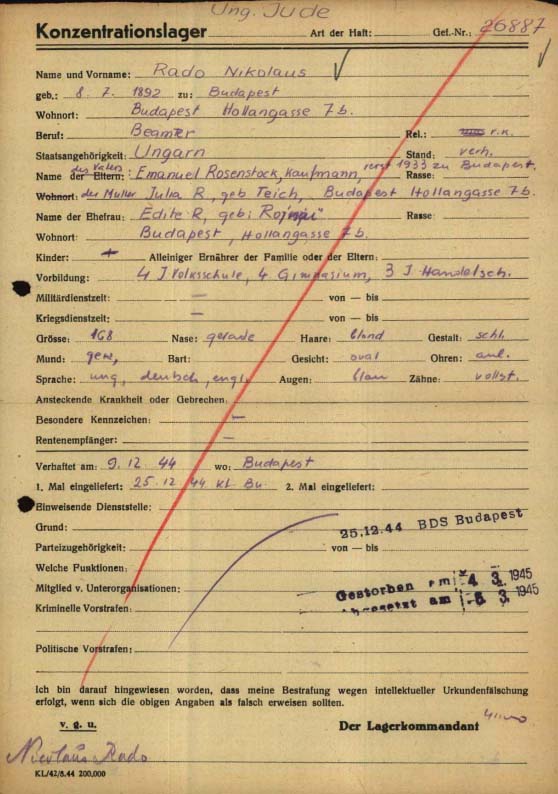 Ung. Jude
Konzentrationslager Art der Haft: Gef.-Nr.: 26887
Name und Vorname: Rado Nikolaus
geb.: 8. 7. 1892 zu: Budapest
Wohnort: Budapest Hollangasse 7b.
Beruf: Beamter Rel.: r.k.
Staatsangehörigkeit: Ungarn Stand: verh.
des Vaters 1933 zu Budapest.
Name der Eltern: Emanuel Rosenstock, Kaufmann, Rasse:
Wohnort: der Mutter Julia R, geb Teich, Budapest Hollangasse 7b.
Name der Ehefrau: Edite R, geb: Rasse:
Wohnort Budapest, Hollangasse 7b.
Kinder: + Alleiniger Ernährer der Familie oder der Eltern:
Vorbildung: 4 J Volksschule, 4 Gimnasium, 3 J. Handelsch.
Militärdienstzeit: — von — bis
Kriegsdienstzeit: — von — bis
Grösse: 168 Nase: gerade Haare: blond Gestalt: schl.
Mund: gew, Bart: Gesicht: oval Ohren: anl.
Sprache: ung, deutsch, engl. Augen: blau Zähne: vollst.
Ansteckende Krankheit oder Gebrechen:
Besondere Kennzeichen: —
Rentenempfänger: —
Verhaftet am: 9. 12. 44 wo: Budapest
1. Mal eingeliefert: 25. 12. 44 Kl. Bu. 2. Mal eingeliefert:
Einweisende Dienststelle:
25.12.44 BDS Budapest
Grund:
Parteizugehörigkeit: von — bis
Welche Funktionen:
Gestorben am 4. 3. 1945
Mitglied v. Unterorganisationen:
abgesetzt am 3. 1945
Kriminelle Vorstrafen:
Politische Vorstrafen:
Ich bin darauf hingewiesen worden, dass meine Bestrafung wegen intellektueller Urkundenfälschung
erfolgt, wenn sich die obigen Angaben als falsch erweisen sollten.
v. g. u. Der Lagerkommandant
Nicolaus Rado
KL/42/5.44 200,000